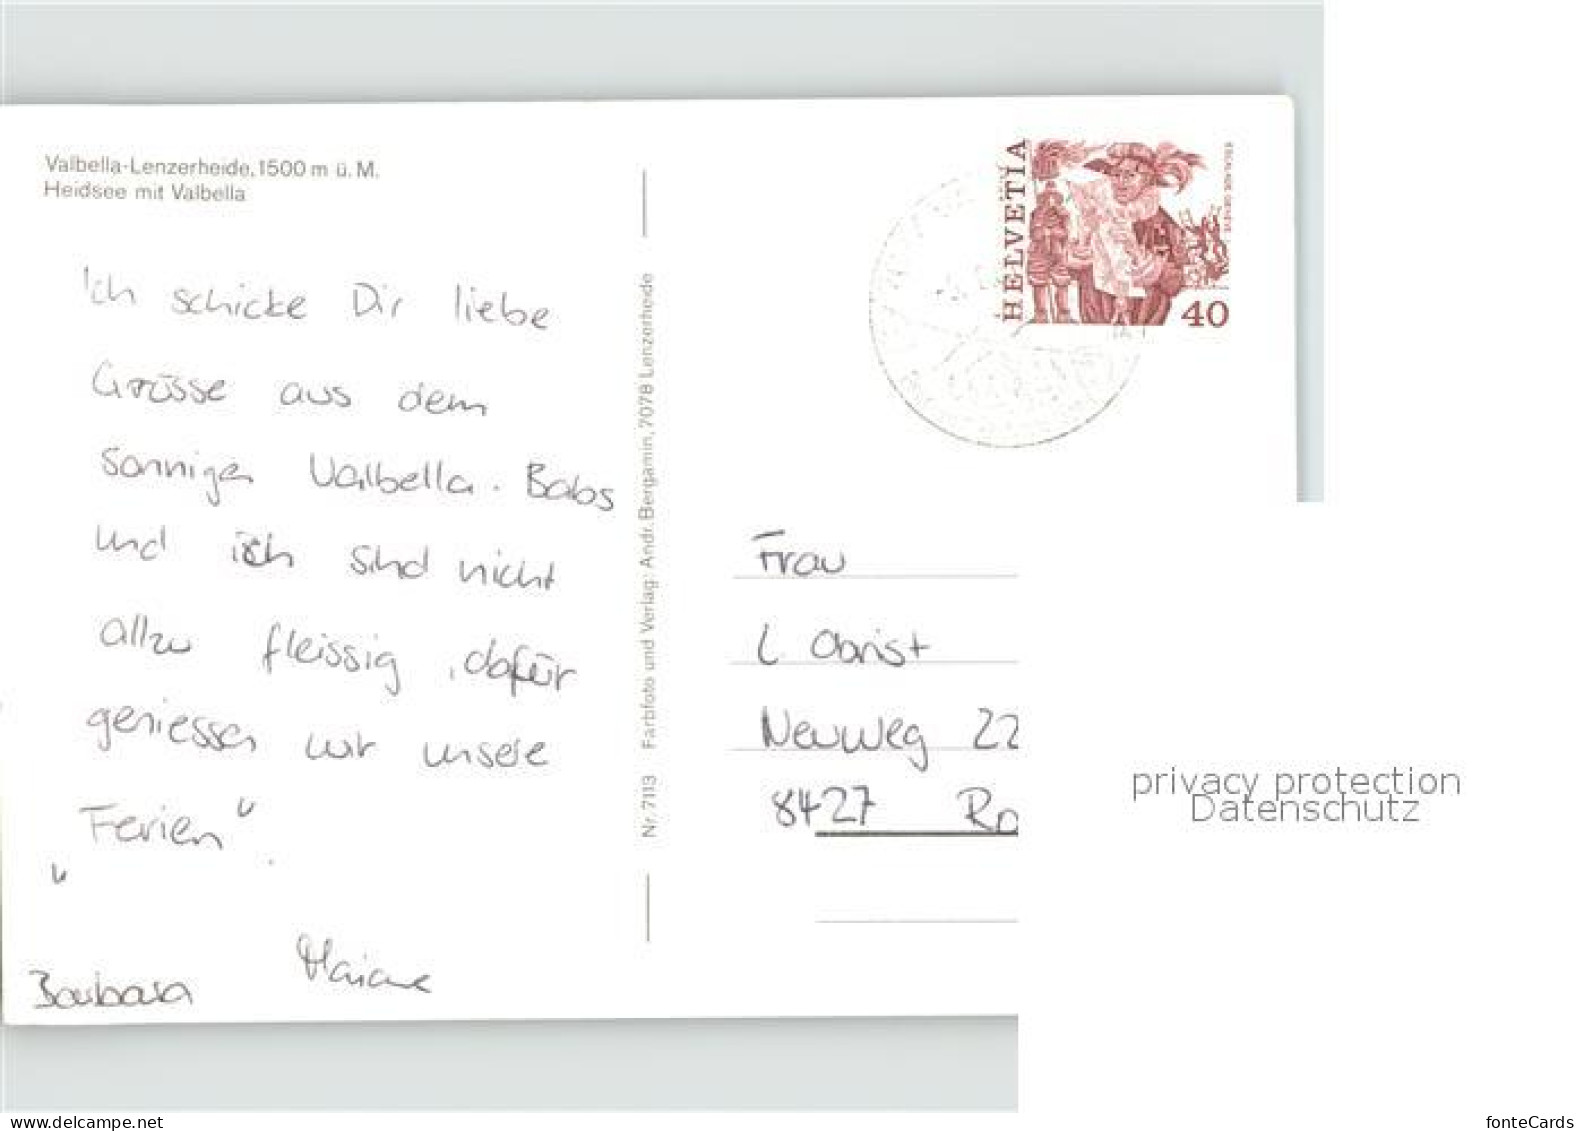 Valbella-Lenzerheide, 1500 m ü. M.
Heidsee mit Valbella
Ich schicke Dir liebe
Grüsse aus dem
sonnigen Valbella. Babs
und ich sind nicht
allzu fleissig, dafür
geniessen wir unsere
"Ferien".
Barbara
Nr. 7113 Farbfoto und Verlag: Andr. Bergamin, 7078 Lenzerheide
HELVETIA
ESCALADE GENÈVE
40
Frau
L Obrist
Neuweg 22
8427 Ro
privacy protection
Datenschutz
fonteCards